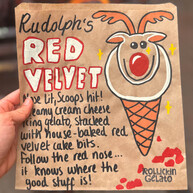 Rudolph's
RED
VELVET
Nose lit, Scoops hit!
Creamy cream cheese
icing gelato, stacked
with house-baked red
velvet cake bits.
Follow the red nose...
it knows where the
good stuff is!
ROLLICKIN
GELATO